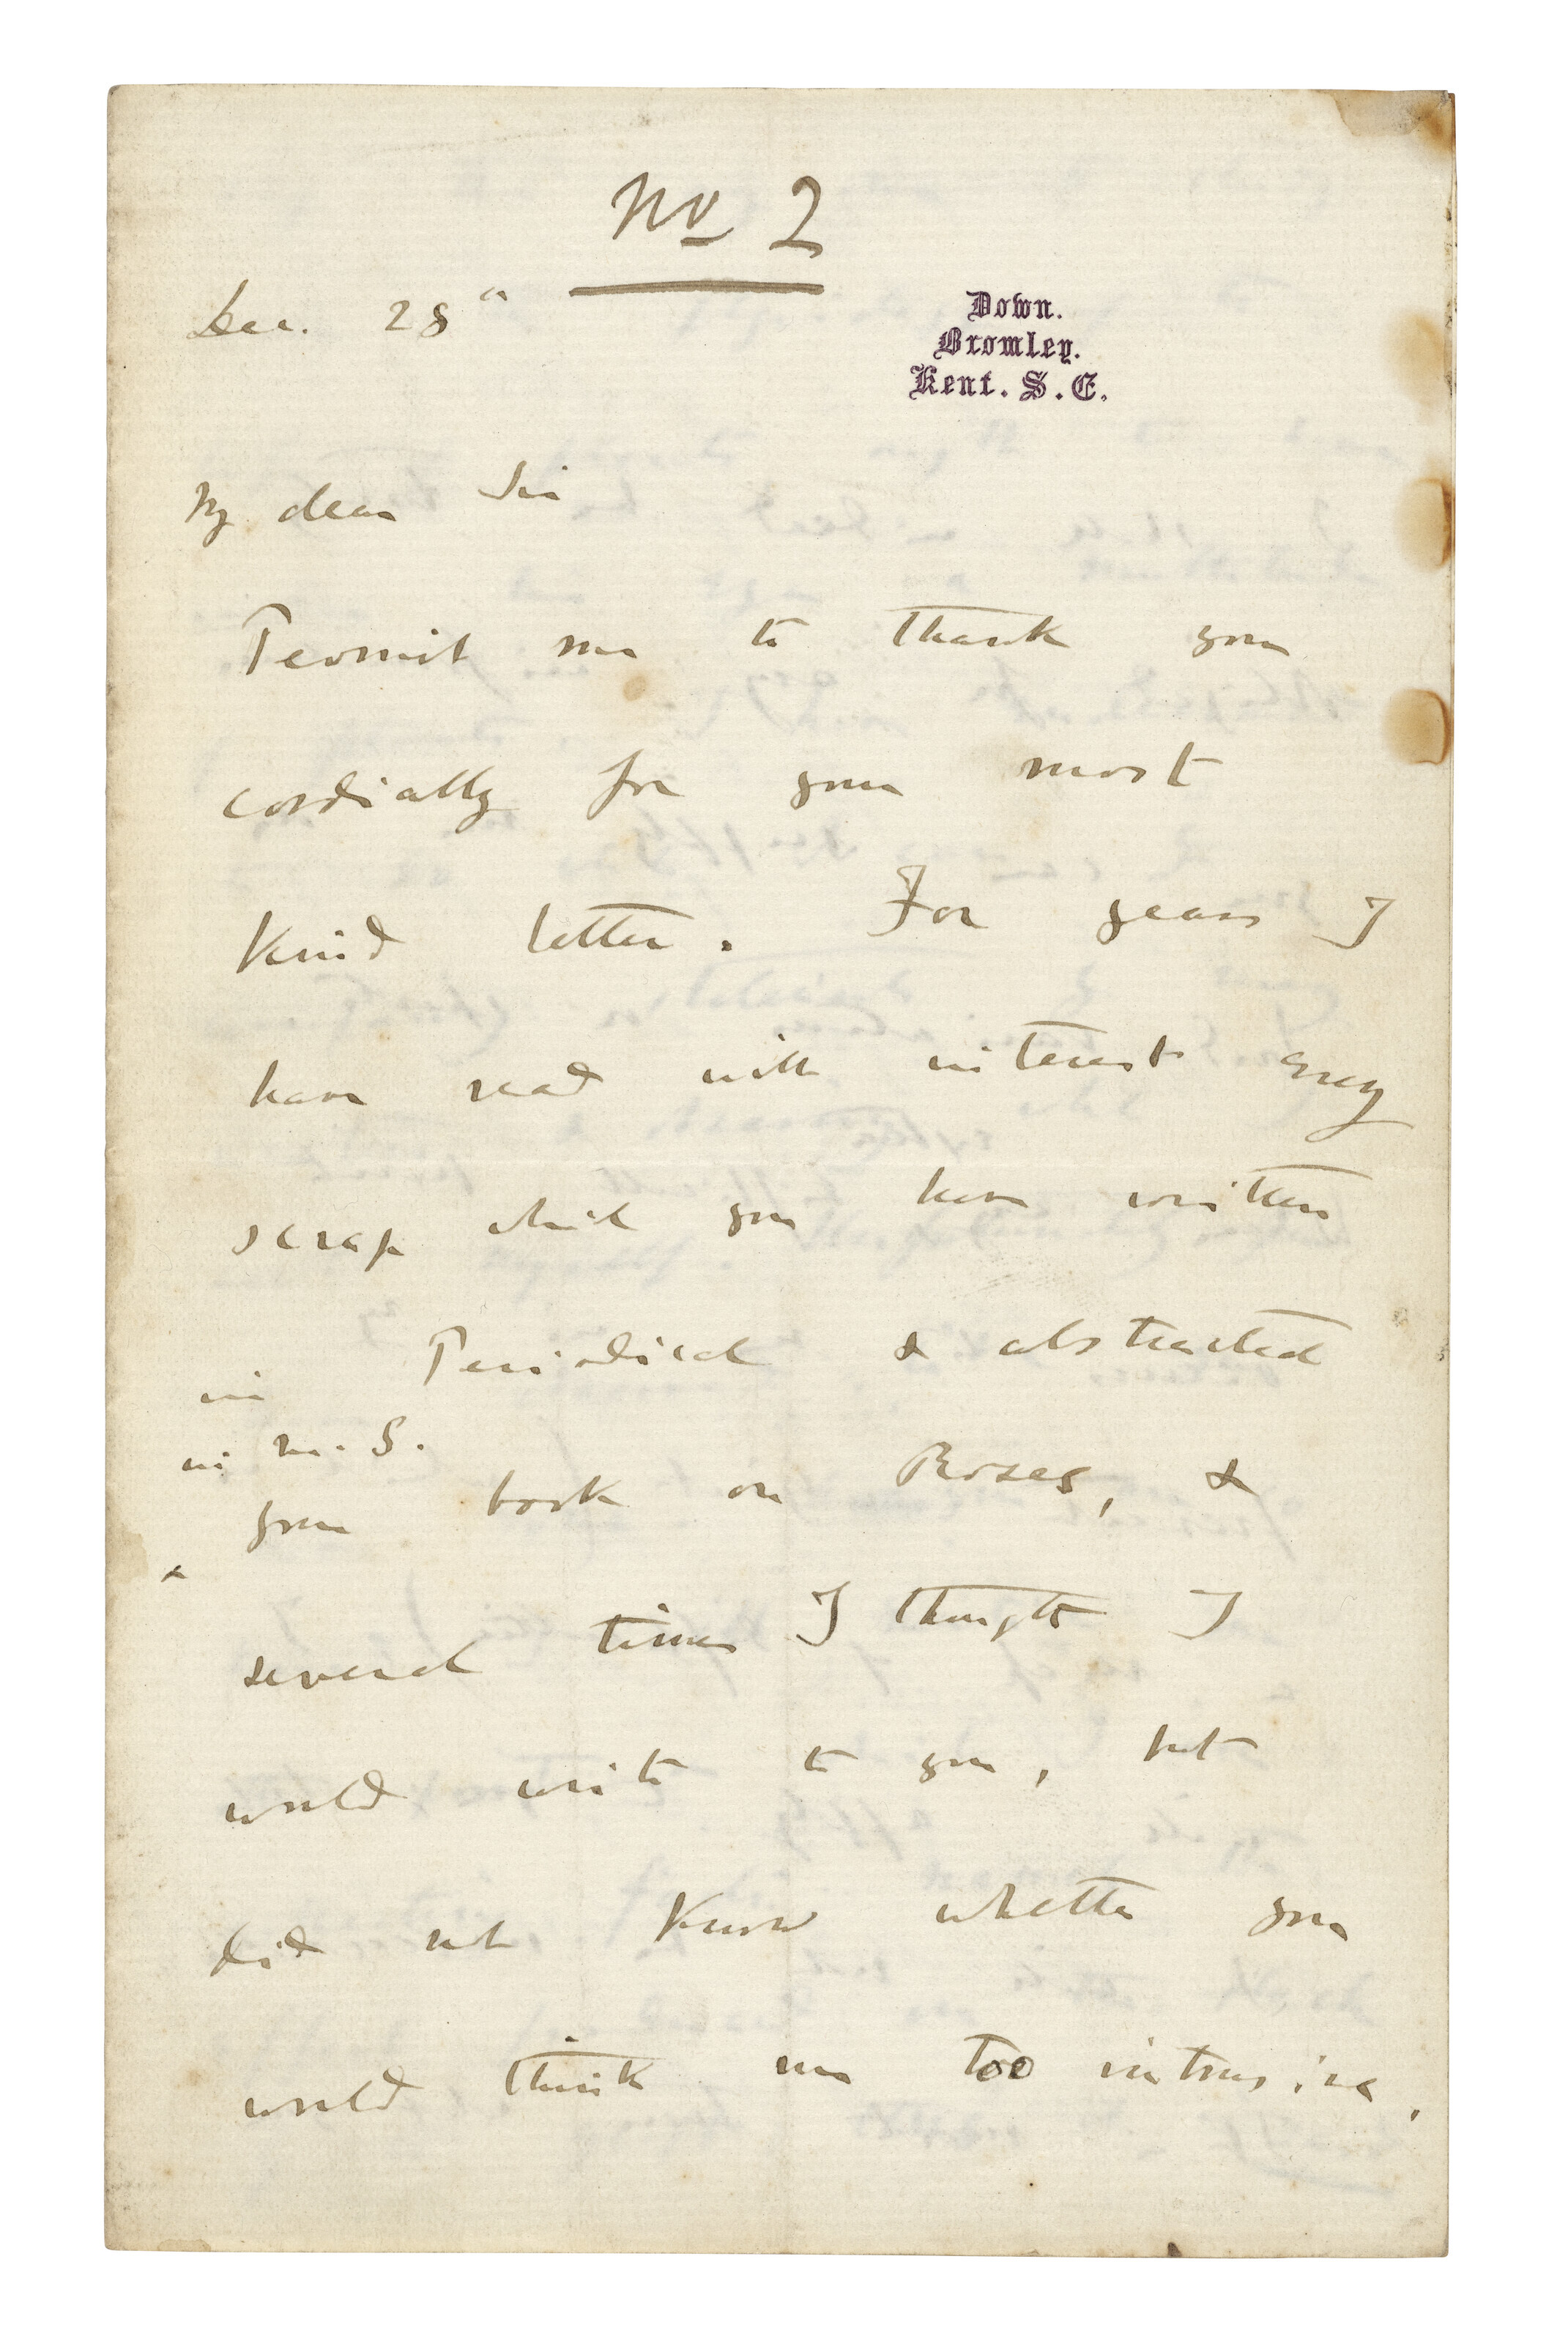 No 2
Dec. 28"
Down.
Bromley.
Kent. S.E.
My dear Sir
Permit me to thank you
cordially for your most
kind letter. For years I
have read with interest every
scrap which you have written
in Periodical & abstracted
in M.S.
your book on Roses, &
several times I thought I
would write to you, but
did not know whether you
would think me too intrusive.